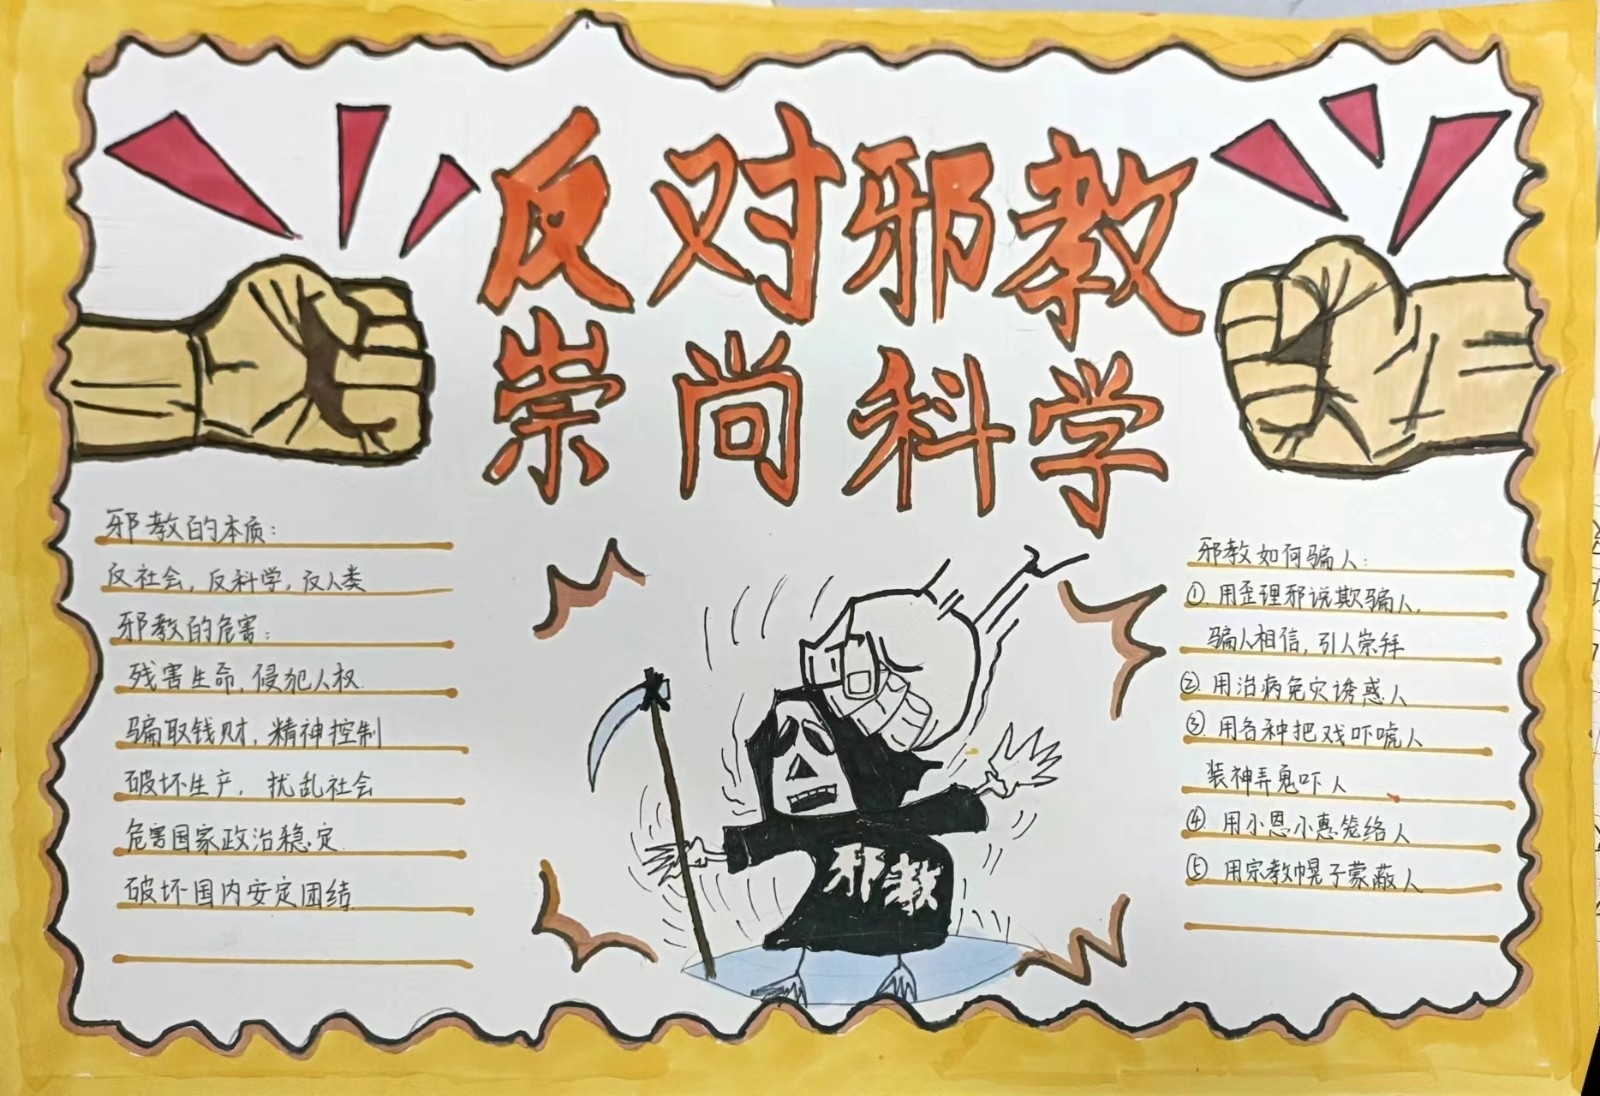 反对邪教
崇尚科学
邪教的本质：
反社会，反科学，反人类
邪教的危害：
残害生命，侵犯人权
骗取钱财，精神控制
破坏生产，扰乱社会
危害国家政治稳定
破坏国内安定团结
邪教如何骗人：
①.用歪理邪说欺骗人，
骗人相信，引人崇拜
②.用治病免灾诱惑人
③.用各种把戏吓唬人
装神弄鬼吓人
④.用小恩小惠笼络人
⑤.用宗教幌子蒙蔽人
邪教